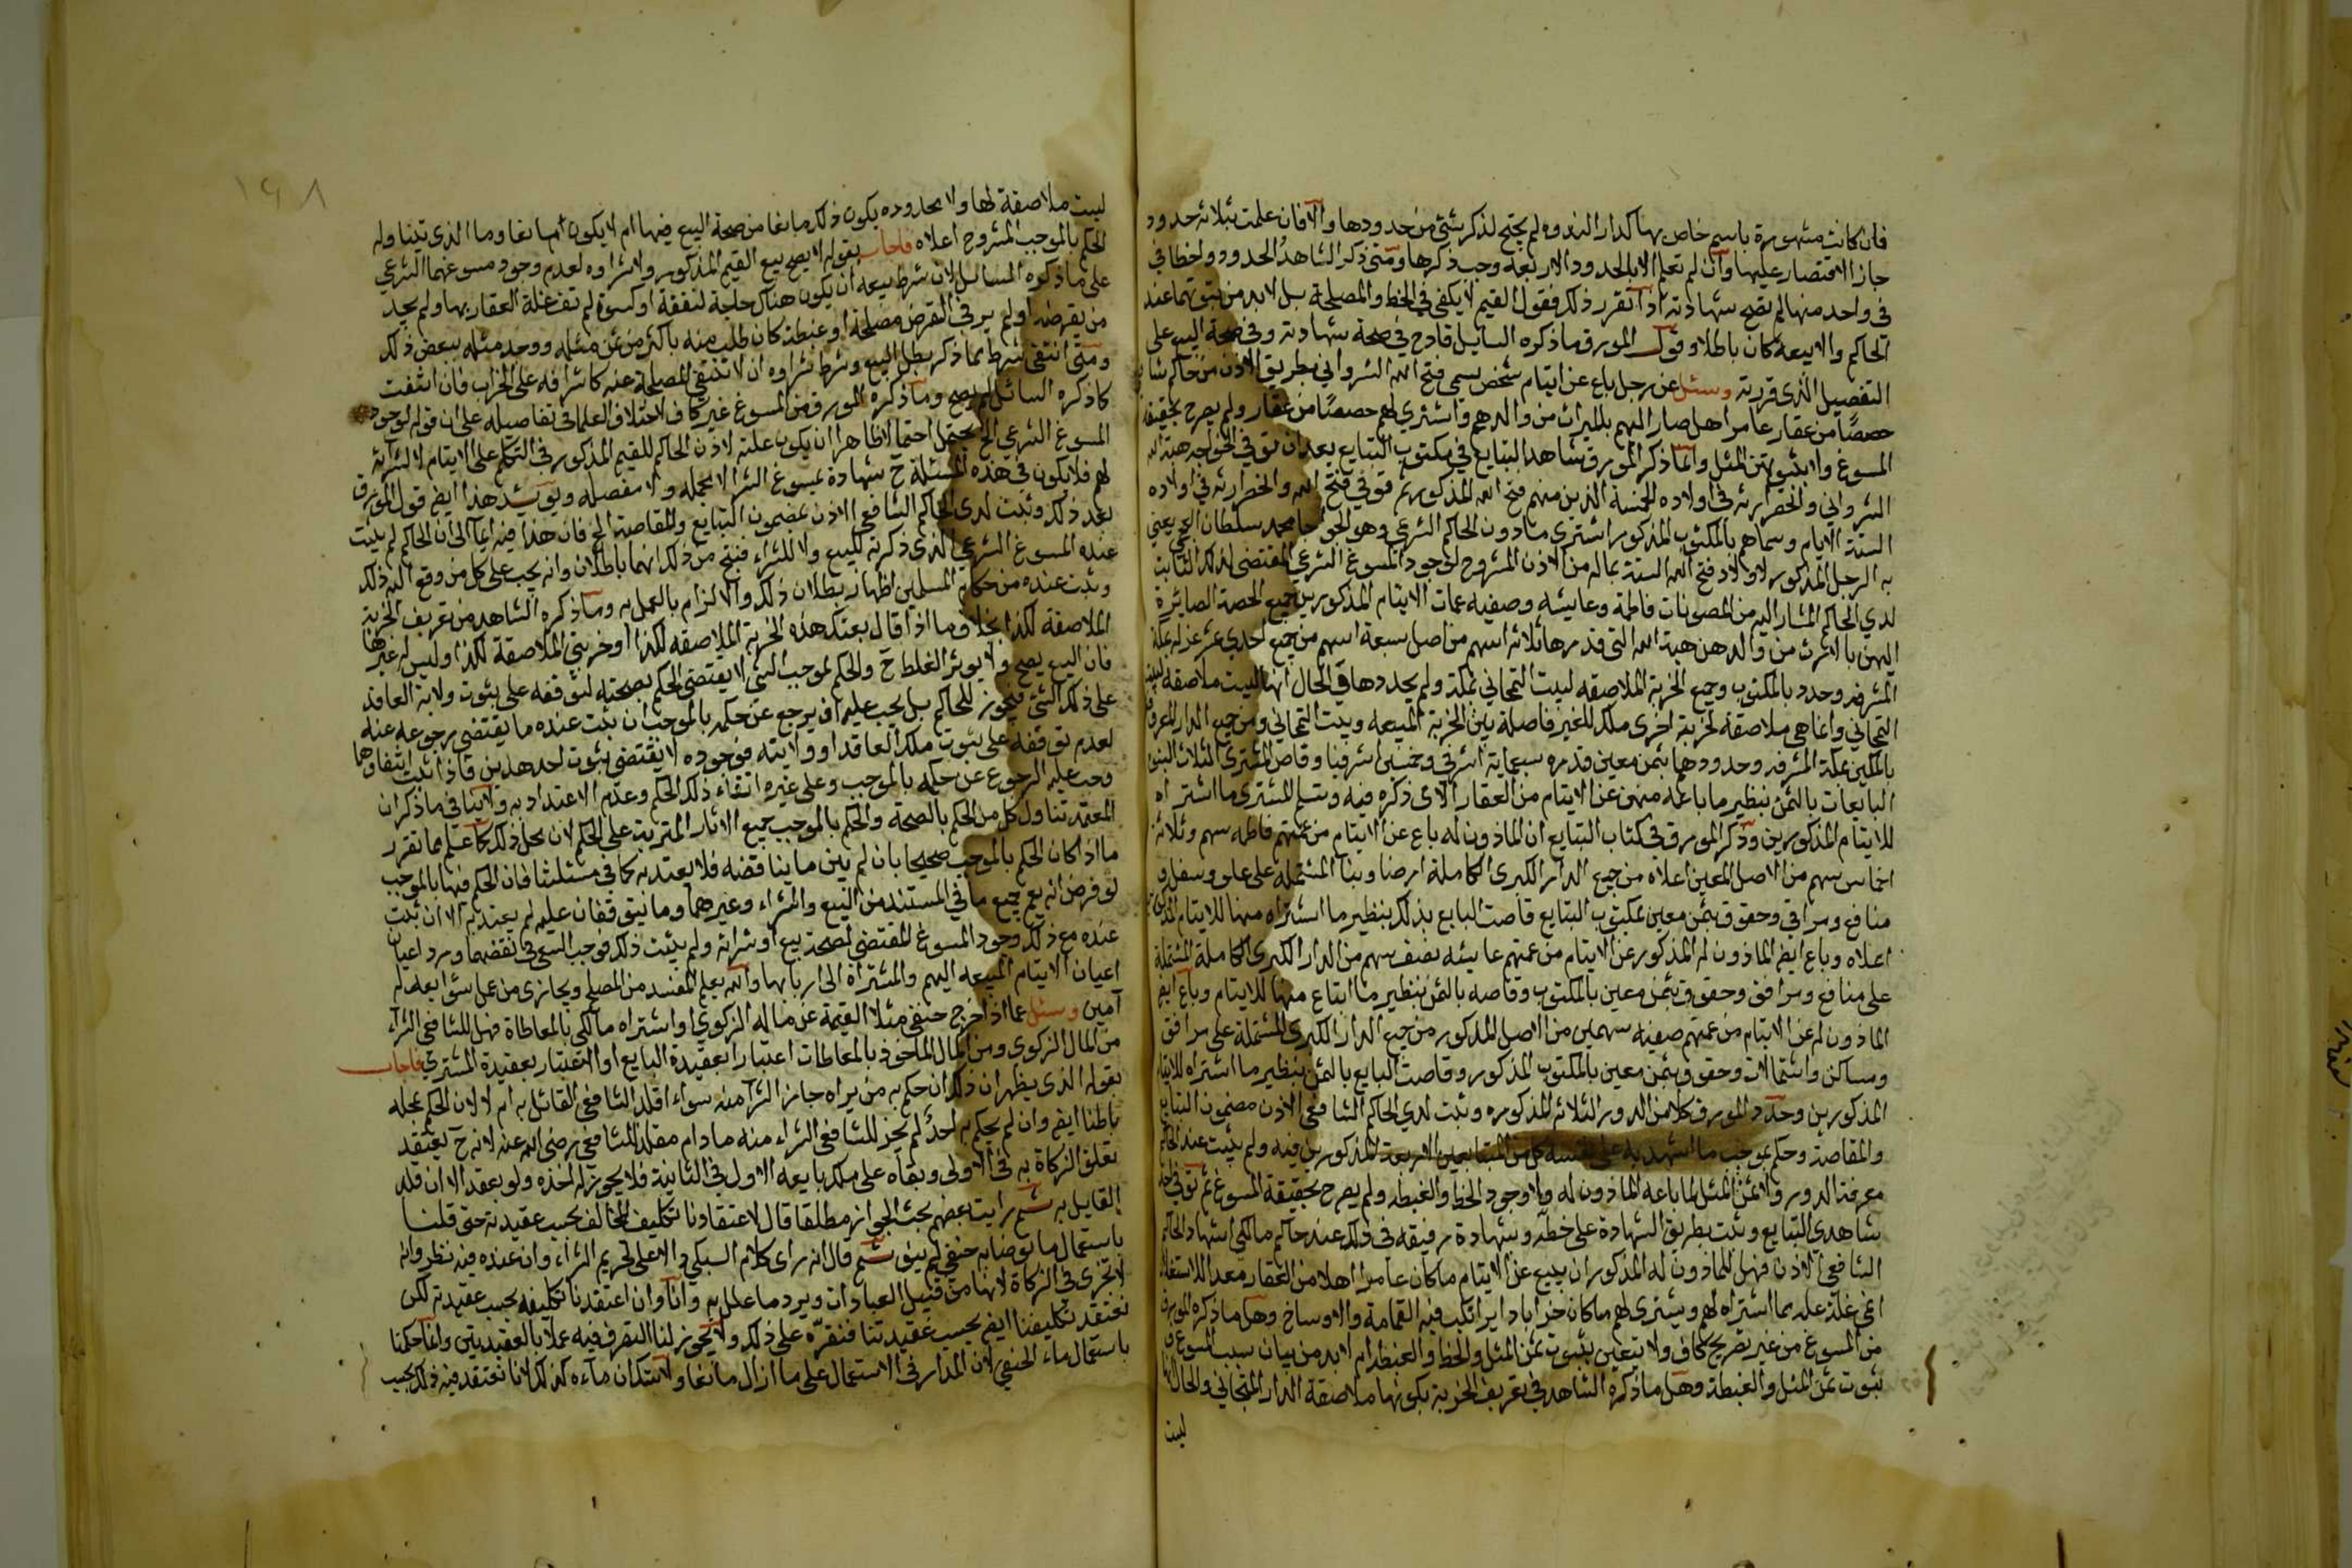 فان كانت مشهورة باسم خاص بها كدار الندوه لم يحتج لذكر شئ من حدودها والا فان علمت بثلاثه حدود
جاز الاقتصار عليها وان لم تعلم الا بالحدود الاربعه وجب ذكرها ومتى ذكر الشاهد الحدود واخطا في
في واحد منها لم تصح شهادته اذا تقرر ذلك فقول القيم لا يكفي في الحظ والمصلحة بل لابد من ثبوتهما عند
الحاكم والا بيعه كان باطلا وقول المورق ما ذكره السايل قادح في صحة شهادته وفي صحة البيع على
التفصيل الذى قررته وسئل عن رجل باع عن ايتام شخص يسمى فتح الله الشرواني بطريق الاذن من حاكم شا
حصصًا من عقار عامر اهل صار اليهم بالميراث من والدهم واشتري لهم حصصًا من عقار ولم يصرح بحقيقة
المسوغ ولا بثبوت ثمن المثل وانما ذكر المورق شاهد التبايع في مكتوب التبايع بعد ان توفي الخواجه هبة الله
الشرواني وانحصر ارثه في اولاده الخمسة الذين منهم فتح الله المذكور ثم توفي فتح الله وانحصر ارثه في اولاده
الستة الايتام وسماهم بالمكتوب المذكور اشترى ماذون الحاكم الشرعي وهو الخواجا محمد سلطان العجمي يعني
به الرجل المذكور لاولاد فتح الله الستة بماله من الاذن المشروح لوجود المسوغ الشرعي المقتضى لذلك الثابت
لدي الحاكم المشار اليه من المصونات فاطمة وعايشه وصفيه عمات الايتام المذكورين جميع الحصة الصايرة
اليهن بالارث من والدهن هبة الله التى قدرها ثلاثه اسهم من اصل سبعة اسهم من جميع احدي عشر عزله بمكة
المشرفه وحدد بالمكتوب وجميع الخربة الملاصقه لبيت التجاني بمكة ولم يحددها في الحال انها ليست ملاصقه لبيت
التجاني وانما هي ملاصقة لخربة اخرى ملك للغير فاصلة بين الخربة المبيعه وبيت التجاني ومن جميع الدار المعروفة
بالملكين بمكة المشرفه وحدودهما بثمن معين قدره سبعماية اشرفي وخمسين اشرفيا وقاص المشترى الثلاث النسوة
البايعات بالثمن بنظير ما باعه منهن عن الايتام من العقار الاتى ذكره فيه وتسلم المشترى ما اشتراه
للايتام المذكورين وذكر المورق في كتاب التبايع ان الماذون له باع عن الايتام من عمتهم فاطمه سهم وثلاثه
اخماس سهم من الاصل المعين اعلاه من جميع الدار الكبرى الكاملة ارضا وبنا المشتمله على علو وسفل و
منافع ومرافق وحقوق بثمن معين بمكتوب التبايع قاصت البايع بذلك بنظير ما اشتراه منها للايتام المذكورين
اعلاه وباع ايضا الماذون له المذكور عن الايتام من عمتهم عايشه نصف سهم من الدار الكبرى الكاملة المشتملة
على منافع ومرافق وحقوق بثمن معين بالمكتوب وقاصه بالثمن بنظير ما ابتاع منها للايتام وباع ايضا
الماذون له عن الايتام من عمتهم صفيه سهمين من الاصل المذكور من جميع الدار الكبرى المشتملة على مرافق
ومساكن واشتمالات وحقوق بثمن معين بالمكتوب المذكور وقاصت البايع بالثمن بنظير ما اشتراه للايتام
المذكورين وحدد المورق كلا من الدور الثلاثه المذكوره وثبت لدي الحاكم الشافعي الاذن مضمون التبايع
والمقاصة وحكم بموجب ما اشهد به على نفسه كل من المتبايعين الاربعة المذكورين فيه ولم يثبت عند الحاكم
معرفة الدور ولا ثمن المثل لما باعه الماذون له ولا وجود الحظ والغبطه ولم يصرح بحقيقة المسوغ ثم توفي احد
شاهدي التبايع وثبت بطريق الشهادة على خطه وشهادة رفيقه في ذلك عند حاكم مالكي اشهاد الحاكم
الشافعي الاذن فهل للماذون له المذكور ان يبيع عن الايتام ما كان عامرا اهلا من العقار معدا للاستغلال
اغن غلة عله بما اشتراه لهم ويشترى لهم ما كان خرابا دايرا تكب فيه القمامة والاوساخ وهل ما ذكره المورق
من المسوغ من غير تصريح كاف ولا يتعين بثبوت ثمن المثل والحظ والغبطه ام لابد من بيان سبب المسوغ و
ثبوت ثمن المثل والغبطة وهل ما ذكره الشاهد في تعريف الخربة بكونها ملاصقة الدار التجاني والحال انها
ليست
١٩٨
ليست ملاصقة لها ولا بحدوده يكون ذلك مانعا من صحة البيع فيها ام لا يكون مانعا وما الذى يتناوله
الحكم بالموجب المشروح اعلاه فاجاب بقوله لا يصح بيع القيم المذكور ولا شراوه لعدم وجود مسوغهما الشرعي
على ما ذكره السائل لان شرط بيعه ان يكون هناك حاجة لنفقة او كسوة لم تف غلة العقار بها ولم يجد
من يقرضه او لم ير في القرض مصلحة او غبطة كان طلب منه باكثر من ثمن مثله ووجد مثله ببعض ذلك
ومتى انتفى شرط مما ذكر بطل البيع وشرط شراوه ان لا تنتفي المصلحة عنه كاشرافه على الخراب فان انتفت
كما ذكره السائل لم يصح وما ذكره المورق من المسوغ غير كاف لاختلاف العلما في تفاصيله على ان قوله لوجود
المسوغ الشرعي الخ يحتمل احتمالا ظاهرا ان يكون علة لاذن الحاكم للقيم المذكور في التكلم على الايتام لا لشرائه
لهم فلا يكون في هذه المسئلة ح شهادة بمسوغ الشرا لا مجمله ولا مفصله ويويد هذا ايضا قول المورق
بعد ذلك وثبت لدى الحاكم الشافعي الاذن مضمون التبايع والمقاصة الخ فان هذا فيه ايما الى ان الحاكم لم يثبت
عنده المسوغ الشرعي الذى ذكرته للبيع ولا للشراء فنتج من ذلك انهما باطلان وانه يجب على كل من وقع اليه ذلك
وثبت عنده من حكام المسلمين اظهار بطلان ذلك والالزام بالعمل به وما ذكره الشاهد من تعريف الخربة
الملاصقة لكذا بخلاف ما اذا قال بعتك هذه الخربة الملاصقه لكذا او خربتي الملاصقة لكذا وليس له غيرها
فان البيع يصح ولا يوثر الغلط ح والحكم بموجب الشئ لا يقتضى الحكم بصحته لتوقفه على ثبوت ولاية العاقد
على ذلك الشئ فيجوز للحاكم بل يجب عليه ان يرجع عن حكمه بالموجب ان ثبت عنده ما يقتضى رجوعه عنه
لعدم توقفه على ثبوت ملك العاقد او ولايته فوجوده لا يقتضى ثبوت احد هذين فاذا ثبت انتفاوهما
وجب عليه الرجوع عن حكمه بالموجب وعلى غيره انتفاء ذلك الحكم وعدم الاعتداد به ولا ينافي ما ذكر ان
المعتمد تناول كل من الحكم بالصحة والحكم بالموجب جميع الاثار المترتبة على الحكم لان محل ذلك كما علم مما تقرر
ما اذا كان الحكم بالموجب صحيحا بان لم يبن ما يناقضه فلا يعتد به كما في مسئلتنا فان الحكم فيها بالموجب
لو فرض انه يعم جميع ما في المستند من البيع والشراء وغيرهما وما يتوقفان عليه لم يعتد به الا ان ثبت
عنده مع ذلك وجود المسوغ المقتضى لصحة بيع او شرائه ولم يثبت ذلك فوجب السعى في نقضهما ورد اعيان
اعيان الايتام المبيعه اليهم والمشتراة الى اربابها والله يعلم المفسد من المصلح ويجازى من عمل سؤا بعدله
آمين وسئل عما اذا اخرج حنفي مثلا القيمة عن ماله الزكوي او اشتراه مالكي بالمعاطاة فهل للشافعي الشراء
من المال الزكوى ومن المال الماخوذ بالمعاطات اعتبارا بعقيدة البايع او الاعتبار بعقيدة المشتري فاجاب
بقوله الذى يظهر ان ذلك ان حكم به من يراه جاز الشرا منه سواء اقلد الشافعي القائل به ام لا لان الحكم بحله
باطنا ايضا وان لم يحكم به احد لم يجز للشافعي الشراء منه ما دام مقلدا للشافعي رضى الله عنه لانه ح يعتقد
تعلق الزكاة به في الاولى وبقاه على ملك بايعه الاول في الثانية فلا يجوز له اخذه ولو بعقد الا ان قلد
القايل به ثم رايت بعضهم بحث الجواز مطلقا قال لاعتقادنا تكليف المخالف بحسب عقيدته حتى قلنا
باستعمال ما توضا به حنفي لم ينو ثم قال انه راى كلام السبكي دالا على تحريم الشراء وان عنده فيه نظر وانه
لا تجزى في الزكاة لانها من قبيل العبادات ويرد ما علل به وانا وان اعتقدنا تكليفه بحسب عقيدته لكن
نعتقد تكليفنا ايضا بحسب عقيدتنا فنقره على ذلك ولا يجوز لنا التصرف فيه عملا بالعقيدتين وانما حكمنا
باستعمال ماء الحنفي لان المدار في الاستعمال على ما ازال مانعا ولا شك ان ماءه كذلك لانا نعتقد فيه ذلك بحسب